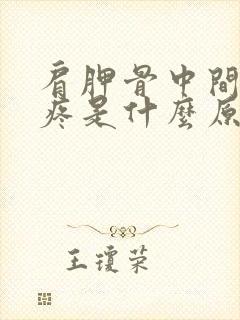 肩胛骨中間
疼是什麼原
王瓊荣